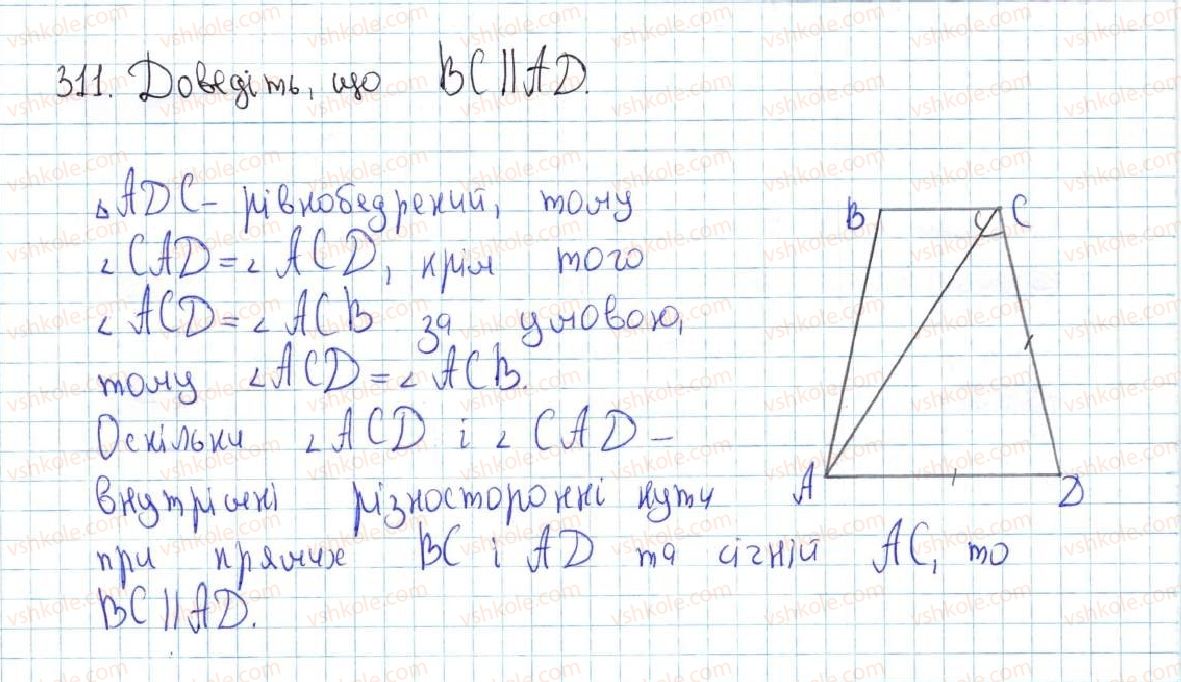 311. Доведіть, що BC||AD.
△ADC – рівнобедрений, тому
∠CAD=∠ACD, крім того
∠ACD=∠ACB за умовою,
тому ∠ACD=∠ACB.
Оскільки ∠ACD і ∠CAD –
внутрішні різносторонні кути
при прямих BC і AD та січній AC, то
BC||AD.
B C
A D
vshkole.com